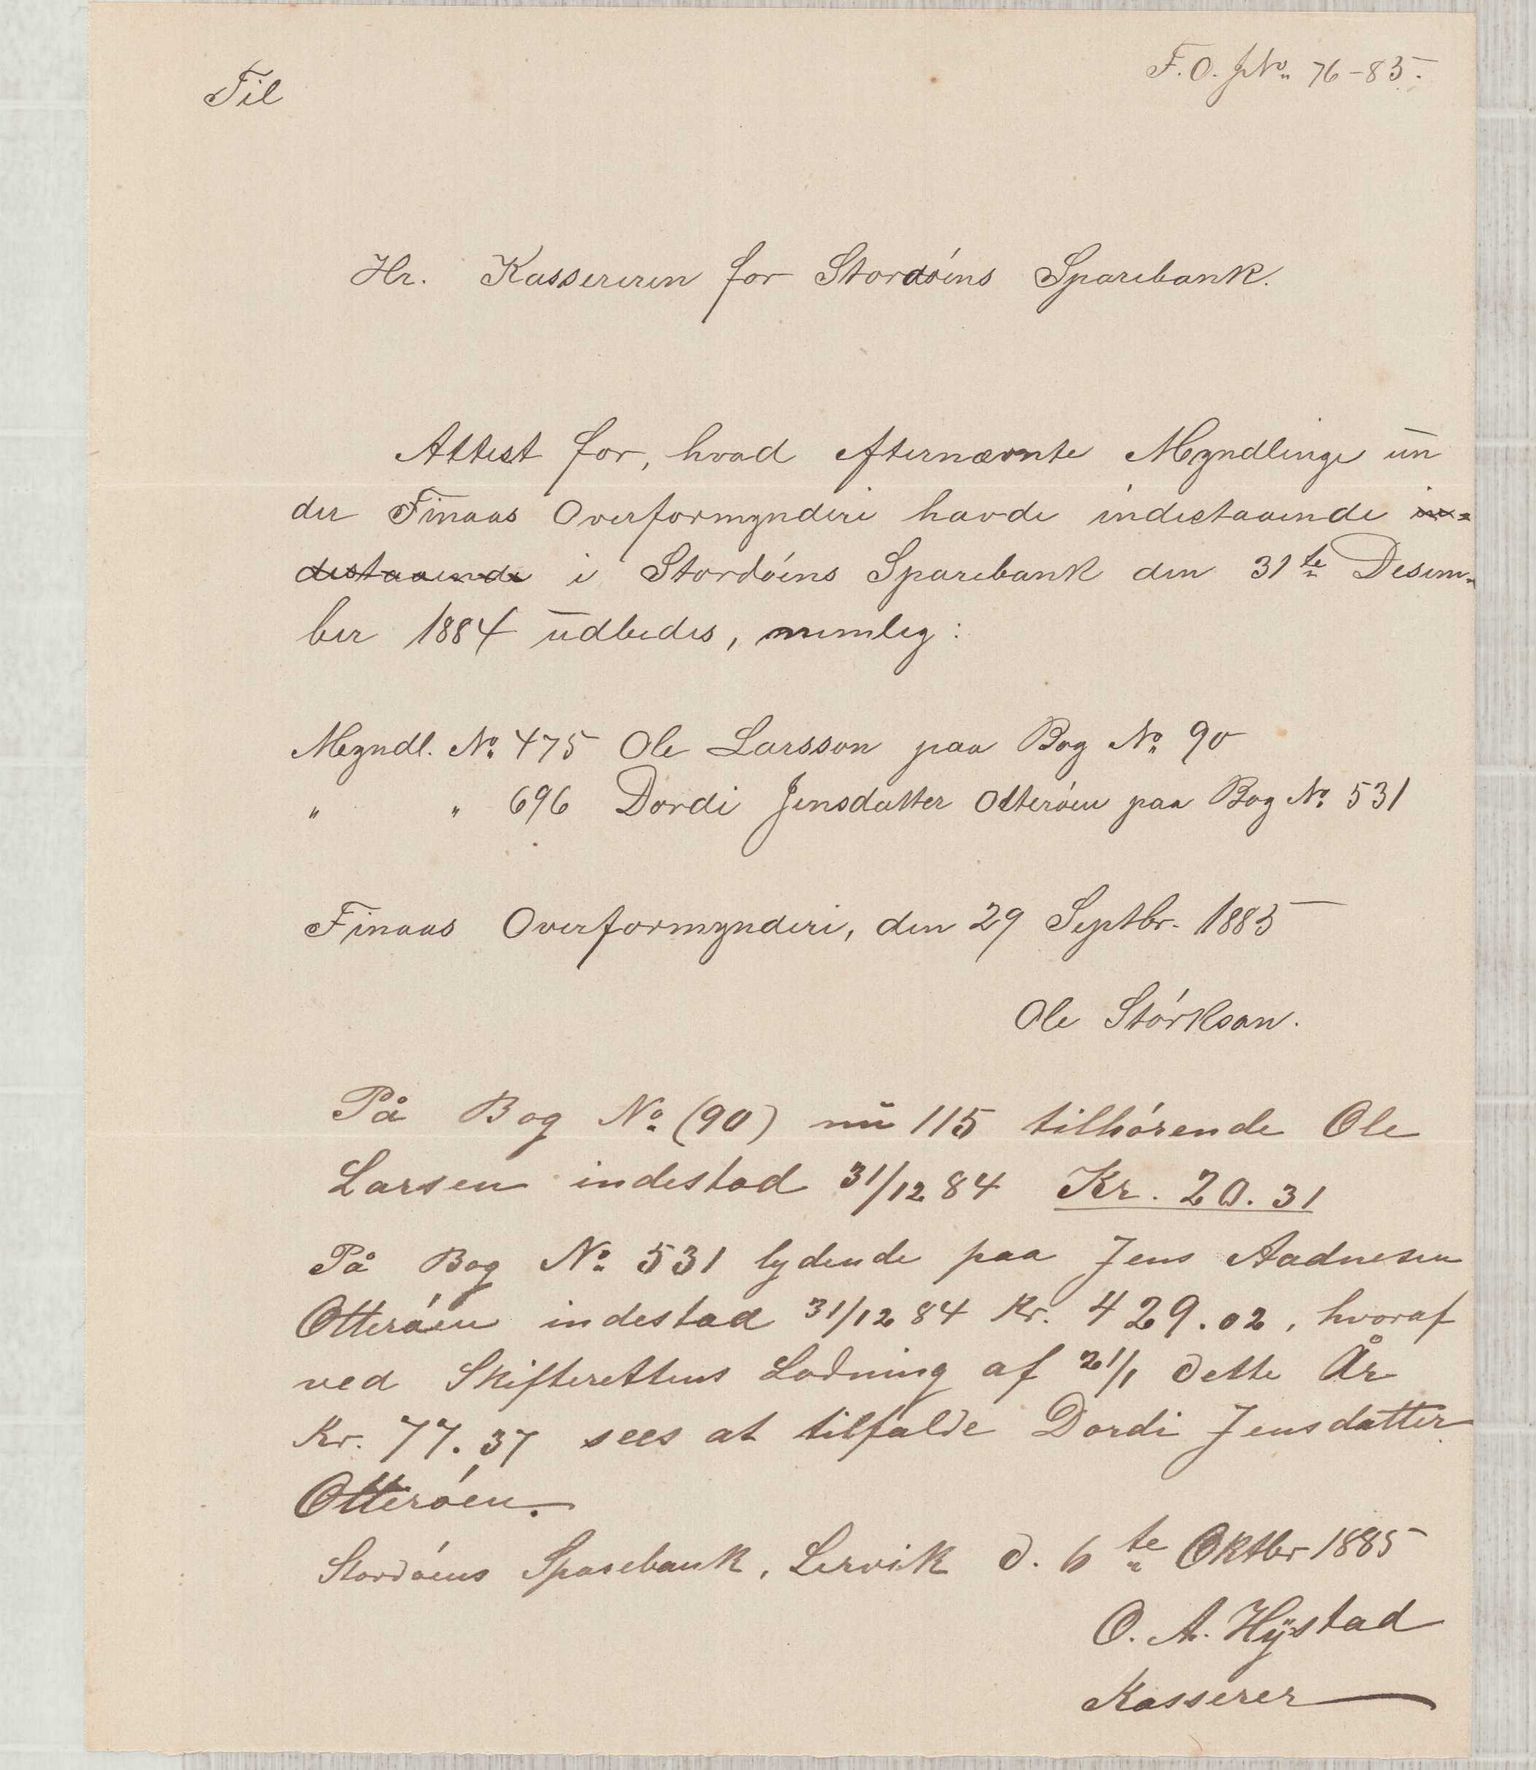 F. O. JNo 76-85.
Til
Hr. Kassereren for Stordøens Sparebank.
Attest for, hvad efternævnte Myndlinge un
der Finaas Overformynderi havde indestaaende in-
destaaende i Stordøens Sparebank den 31te Desem-
ber 1884 udbedes, nemleg:
Myndl. No 475 Ole Larsson paa Bog No 90
" " 696 Dordi Jensdatter Otterøen paa Bog No 531
Finaas Overformynderi, den 29 Septbr. 1885
Ole Størkson.
På Bog No (90) nu 115 tilhørende Ole
Larsen indestod 31/12 84 Kr. 20.31
På Bog No 531 lydende paa Jens Aadnesen
Otterøen indestod 31/12 84 Kr. 429.02, hvoraf
ved Skifterettens Lodning af 21/1 dette År
Kr. 77.37 sees at tilfalde Dordi Jensdatter
Otterøen.
Stordøens Sparebank, Lervik d. 6te Oktbr 1885
O. A. Hystad
Kasserer